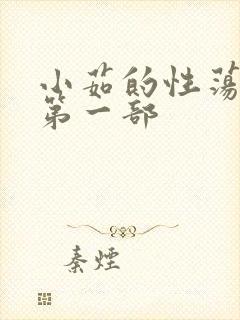 小茹的性荡
第一部
秦煙